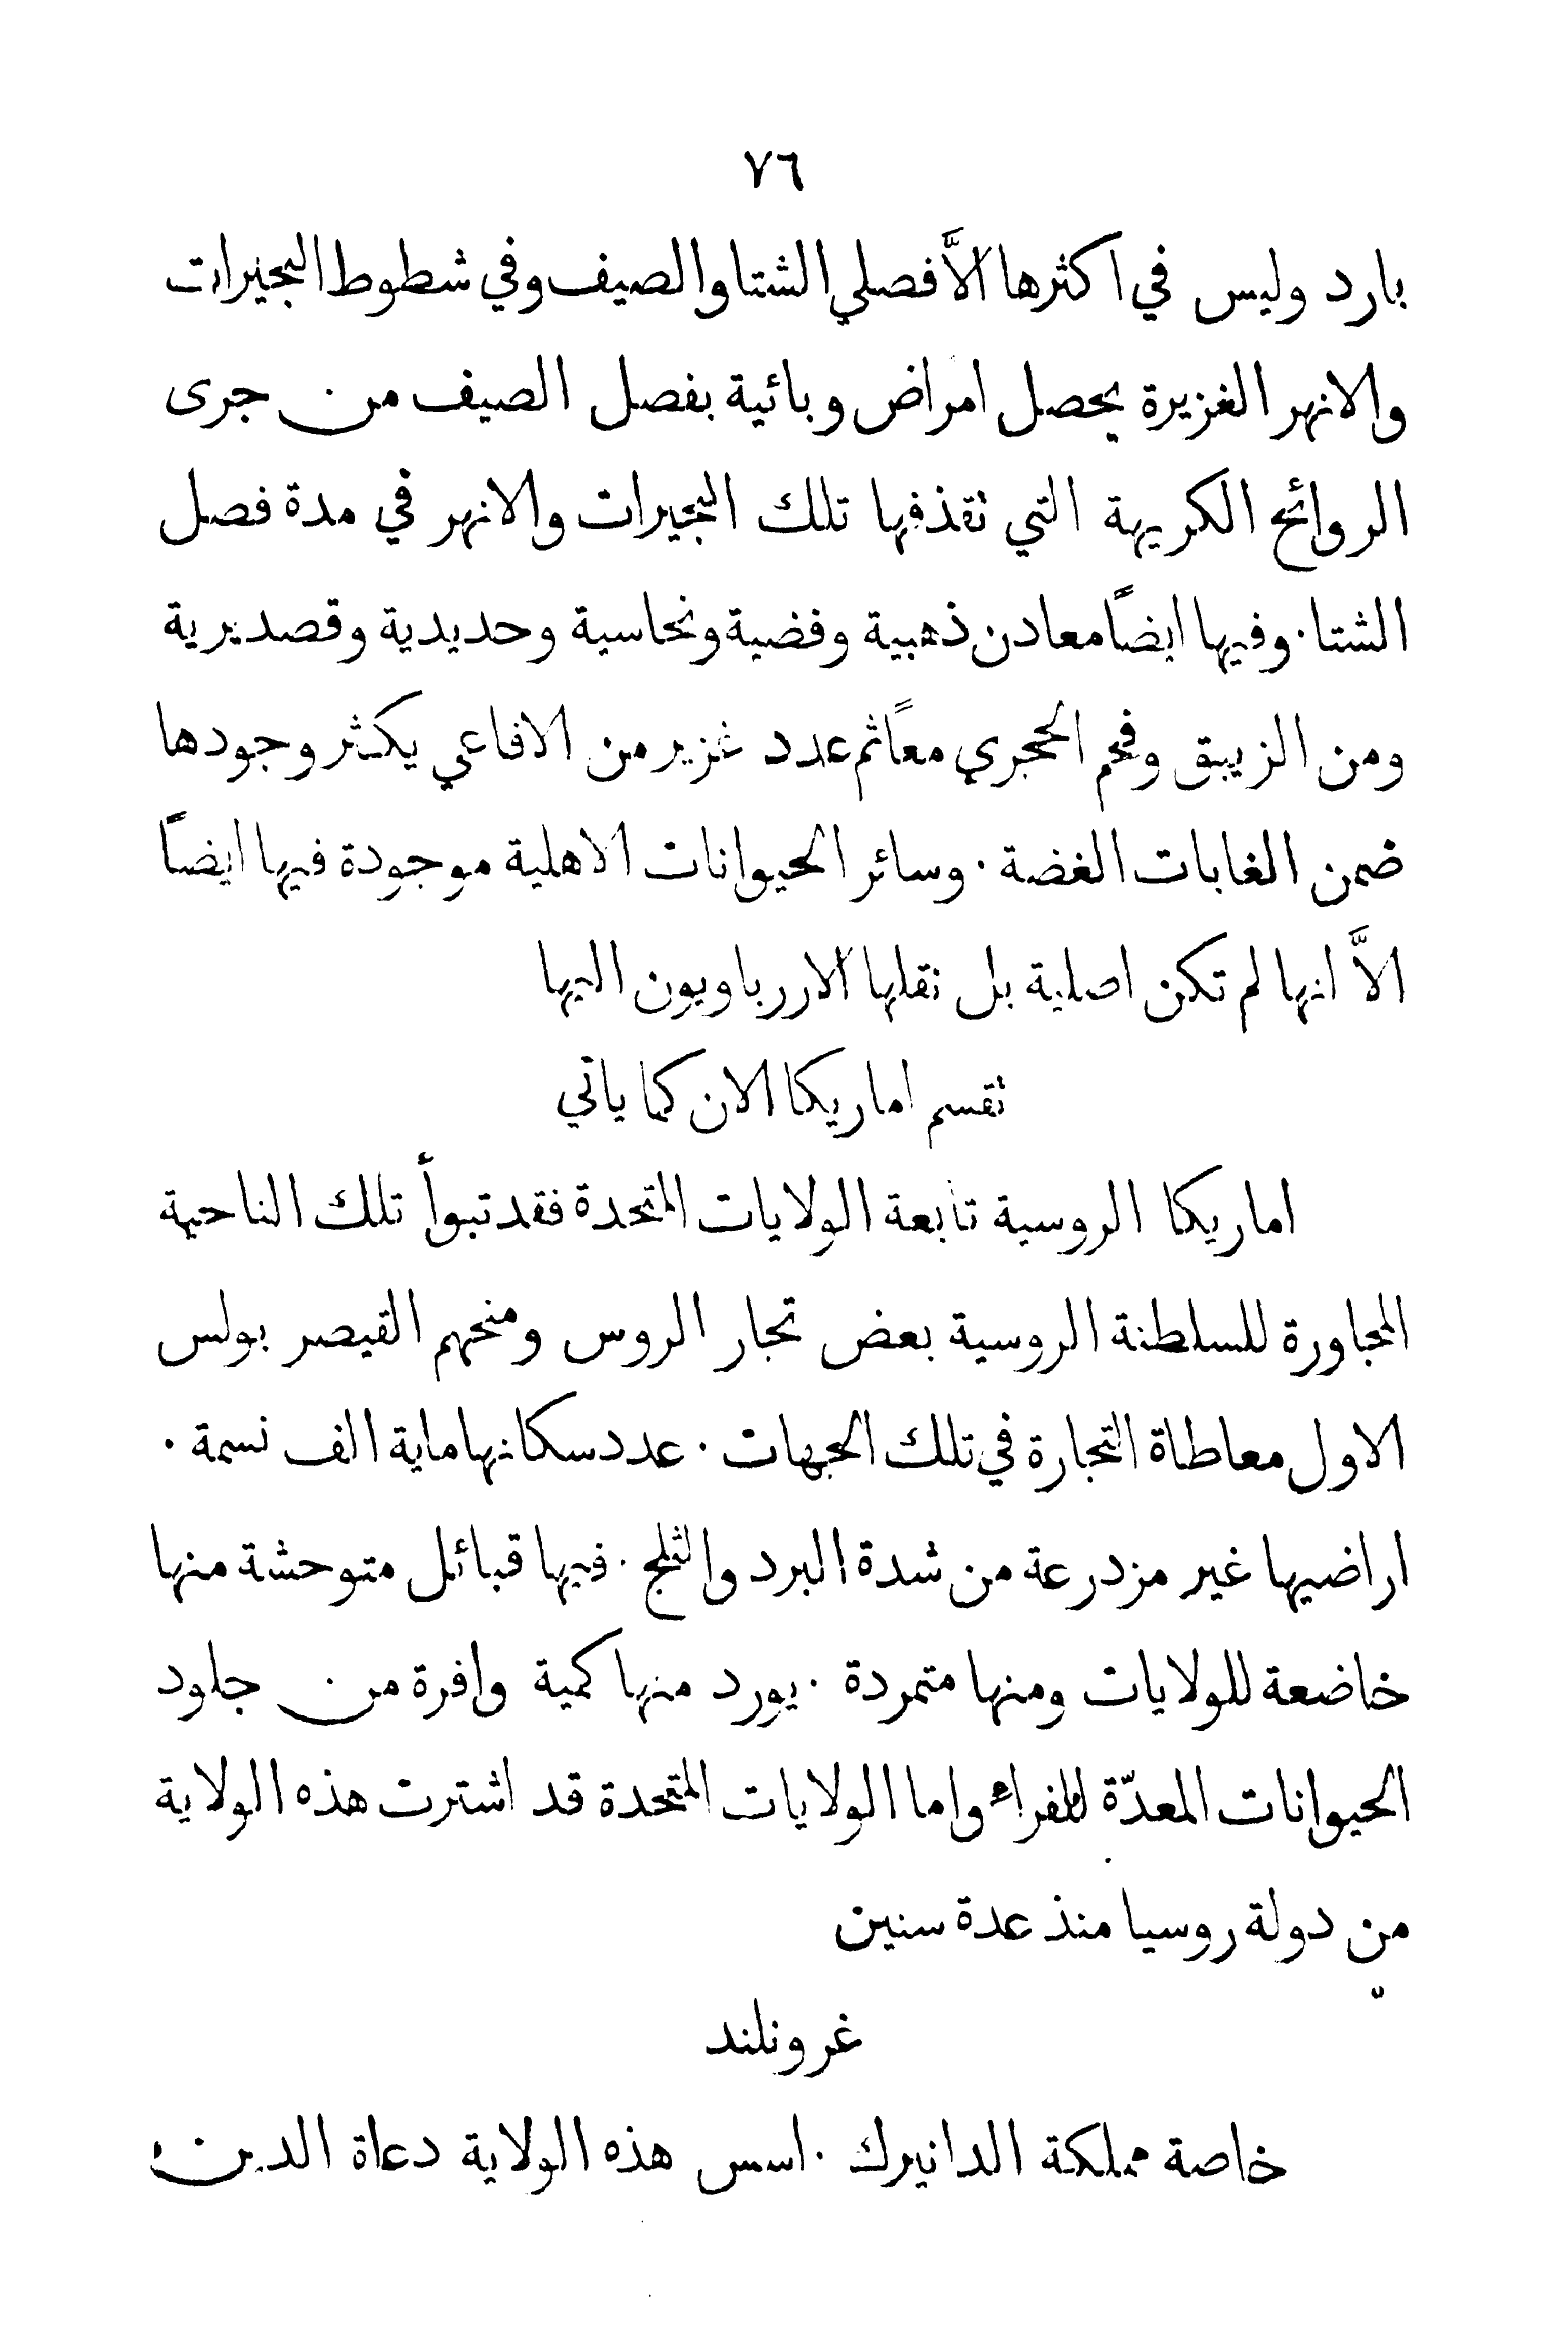 ٧٦
بارد وليس في اكثرها الاَّ فصلي الشتا والصيف وفي شطوط البحيرات
والانهر الغزيرة يحصل امراض وبائية بفصل الصيف من جرى
الروائح الكريهة التي تقذفها تلك البحيرات والانهر في مدة فصل
الشتا. وفيها ايضاً معادن ذهبية وفضية ونحاسية وحديدية وقصديرية
ومن الزيبق وفحم الحجري معاً ثم عدد غزير من الافاعي يكثر وجودها
ضمن الغابات الغضة. وسائر الحيوانات الاهلية موجودة فيها ايضاً
الاَّ انها لم تكن اصلية بل نقلها الارر باويون اليها
تقسم اماريكا الان كما ياتي
اماريكا الروسية تابعة الولايات المتحدة فقد تبوأ تلك الناحية
المجاورة للسلطنة الروسية بعض تجار الروس ومنحهم القيصر بولس
الاول معاطاة التجارة في تلك الجهات. عدد سكانها ماية الف نسمة.
اراضيها غير مزدرعة من شدة البرد والثلج. فيها قبائل متوحشة منها
خاضعة للولايات ومنها متمردة. يورد منها كمية وافرة من جلود
الحيوانات المعدّة للفراء واما الولايات المتحدة قد اشترت هذه الولاية
من دولة روسيا منذ عدة سنين
غرونلند
خاصة مملكة الدانيرك. اسس هذه الولاية دعاة الدين